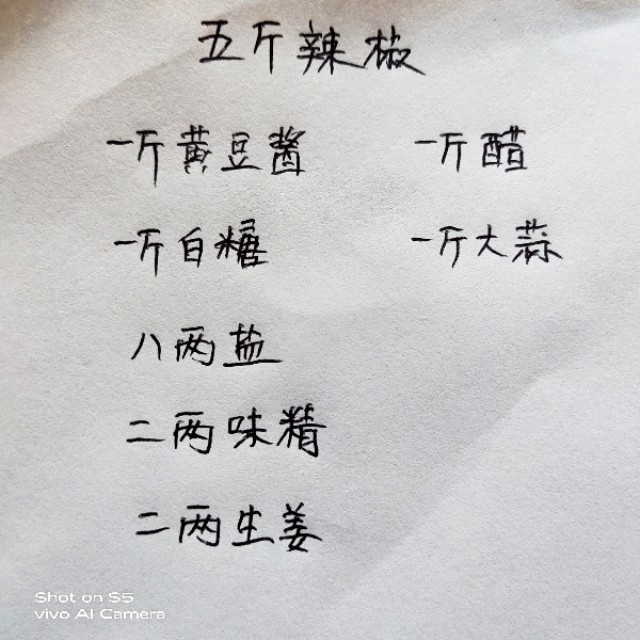 五斤辣椒
一斤黄豆酱 一斤醋
一斤白糖 一斤大蒜
八两盐
二两味精
二两生姜
Shot on S5
vivo AI Camera